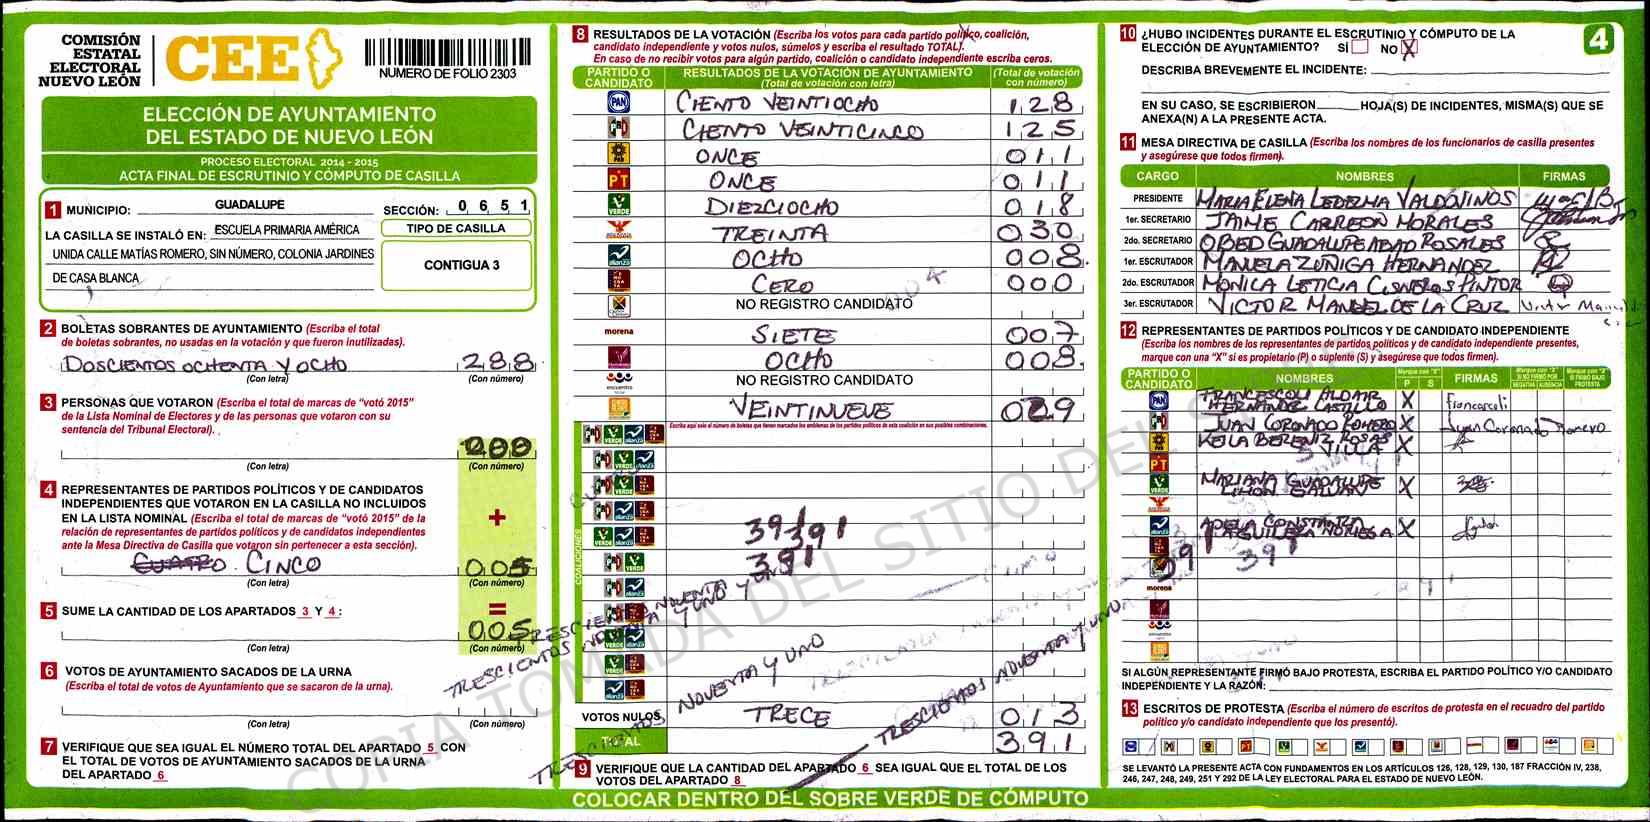 COMISIÓN
ESTATAL
ELECTORAL
NUEVO LEÓN
CEE
NUMERO DE FOLIO 2303
ELECCIÓN DE AYUNTAMIENTO
DEL ESTADO DE NUEVO LEÓN
PROCESO ELECTORAL 2014 - 2015
ACTA FINAL DE ESCRUTINIO Y CÓMPUTO DE CASILLA
1 MUNICIPIO: GUADALUPE SECCIÓN: 0 6 5 1
LA CASILLA SE INSTALÓ EN: ESCUELA PRIMARIA AMÉRICA
UNIDA CALLE MATÍAS ROMERO, SIN NÚMERO, COLONIA JARDINES
DE CASA BLANCA
TIPO DE CASILLA
CONTIGUA 3
2 BOLETAS SOBRANTES DE AYUNTAMIENTO (Escriba el total
de boletas sobrantes, no usadas en la votación y que fueron inutilizadas).
DOSCIENTOS OCHENTA Y OCHO 288
(Con letra) (Con número)
3 PERSONAS QUE VOTARON (Escriba el total de marcas de "votó 2015"
de la Lista Nominal de Electores y de las personas que votaron con su
sentencia del Tribunal Electoral).
(Con letra) (Con número)
4 REPRESENTANTES DE PARTIDOS POLÍTICOS Y DE CANDIDATOS
INDEPENDIENTES QUE VOTARON EN LA CASILLA NO INCLUIDOS
EN LA LISTA NOMINAL (Escriba el total de marcas de "votó 2015" de la
relación de representantes de partidos políticos y de candidatos independientes
ante la Mesa Directiva de Casilla que votaron sin pertenecer a esta sección).
+
CUATRO CINCO 005
(Con letra) (Con número)
=
5 SUME LA CANTIDAD DE LOS APARTADOS 3 Y 4:
005
(Con letra) (Con número)
6 VOTOS DE AYUNTAMIENTO SACADOS DE LA URNA
(Escriba el total de votos de Ayuntamiento que se sacaron de la urna).
(Con letra) (Con número)
7 VERIFIQUE QUE SEA IGUAL EL NÚMERO TOTAL DEL APARTADO 5 CON
EL TOTAL DE VOTOS DE AYUNTAMIENTO SACADOS DE LA URNA
DEL APARTADO 6
8 RESULTADOS DE LA VOTACIÓN (Escriba los votos para cada partido político, coalición,
candidato independiente y votos nulos, súmelos y escriba el resultado TOTAL).
En caso de no recibir votos para algún partido, coalición o candidato independiente escriba ceros.
PARTIDO O CANDIDATO RESULTADOS DE LA VOTACIÓN DE AYUNTAMIENTO (Total de votación con letra) (Total de votación con número)
PAN CIENTO VEINTIOCHO 128
PRI CIENTO VEINTICINCO 125
PRD ONCE 011
PT ONCE 011
VERDE DIEZCIOCHO 018
TREINTA 030
alianza OCHO 008
CERO 000
NO REGISTRO CANDIDATO
morena SIETE 007
OCHO 008
encuentro NO REGISTRO CANDIDATO
VEINTINUEVE 029
Escriba aquí solo el número de boletas que tienen marcados los emblemas de los partidos políticos de esta coalición en sus posibles combinaciones.
COALICIONES
391
391
391
TRESCIENTOS NOVENTA Y UNO
TRESCIENTOS NOVENTA Y UNO
TRESCIENTOS NOVENTA Y UNO
TRESCIENTOS NOVENTA Y UNO
VOTOS NULOS TRECE 013
TOTAL 391
9 VERIFIQUE QUE LA CANTIDAD DEL APARTADO 6 SEA IGUAL QUE EL TOTAL DE LOS
VOTOS DEL APARTADO 8
COLOCAR DENTRO DEL SOBRE VERDE DE CÓMPUTO
10 ¿HUBO INCIDENTES DURANTE EL ESCRUTINIO Y CÓMPUTO DE LA
ELECCIÓN DE AYUNTAMIENTO? SÍ NO X
4
DESCRIBA BREVEMENTE EL INCIDENTE:
EN SU CASO, SE ESCRIBIERON HOJA(S) DE INCIDENTES, MISMA(S) QUE SE
ANEXA(N) A LA PRESENTE ACTA.
11 MESA DIRECTIVA DE CASILLA (Escriba los nombres de los funcionarios de casilla presentes
y asegúrese que todos firmen).
CARGO NOMBRES FIRMAS
PRESIDENTE MARIA ELENA LEDEZMA VALDOVINOS
1er. SECRETARIO JAIME CARREON MORALES
2do. SECRETARIO OBED GUADALUPE ABAD ROSALES
1er. ESCRUTADOR MANUELA ZUÑIGA HERNANDEZ
2do. ESCRUTADOR MONICA LETICIA CISNEROS PINTOR
3er. ESCRUTADOR VICTOR MANUEL DE LA CRUZ
12 REPRESENTANTES DE PARTIDOS POLÍTICOS Y DE CANDIDATO INDEPENDIENTE
(Escriba los nombres de los representantes de partidos políticos y de candidato independiente presentes,
marque con una "X" si es propietario (P) o suplente (S) y asegúrese que todos firmen).
PARTIDO O CANDIDATO NOMBRES Marque con "X" P S FIRMAS Marque con "X" SI NO FIRMÓ POR NEGATIVA AUSENCIA Marque con "X" SI FIRMÓ BAJO PROTESTA
PAN FRANCESCOLI ALDAIR HERNANDEZ CASTILLO X Francescoli
JUAN CORONADO ROMERO X Juan Coronado Romero
KEILA BERENIZ ROSAS VILLA X
PT
VERDE MARIANA GUADALUPE LIMON GALVAN X
ADELA CONSTANZA AGUILERA NORIEGA X
391 391
morena
SI ALGÚN REPRESENTANTE FIRMÓ BAJO PROTESTA, ESCRIBA EL PARTIDO POLÍTICO Y/O CANDIDATO
INDEPENDIENTE Y LA RAZÓN:
13 ESCRITOS DE PROTESTA (Escriba el número de escritos de protesta en el recuadro del partido
político y/o candidato independiente que los presentó).
SE LEVANTÓ LA PRESENTE ACTA CON FUNDAMENTOS EN LOS ARTÍCULOS 126, 128, 129, 130, 187 FRACCIÓN IV, 238,
246, 247, 248, 249, 251 Y 292 DE LA LEY ELECTORAL PARA EL ESTADO DE NUEVO LEÓN.
COPIA TOMADA DEL SITIO DEL